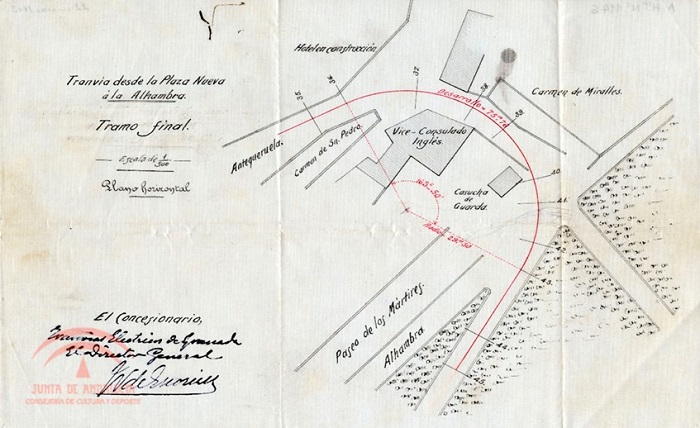 Tranvia desde la Plaza Nueva
á la Alhambra.
Tramo final.
Escala de 1/500
Plano horizontal
Hotel en construcción
Carmen de Miralles.
Desarrollo = 75m 7d
Vice-Consulado
Inglés.
Antequeruela.
Carmen de Sn. Pedro.
Casucha
de
Guarda.
163°-50'
Radio
Paseo de los Mártires.
Alhambra
35.
36.
37
38
40.
41.
42
43.
44.
45.
El Concesionario,
Tranvias Electricos de Granada
El Director General
JUNTA DE
CONSEJERÍA DE CULTURA Y DEPORTE